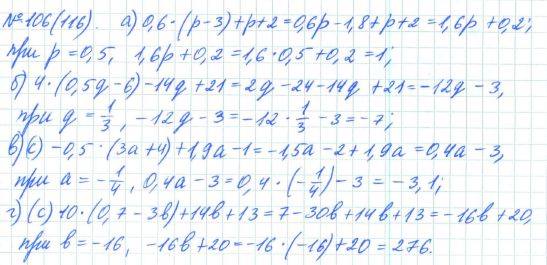 №106(116). а) 0,6·(p-3)+p+2=0,6p-1,8+p+2=1,6p+0,2;
при p=0,5, 1,6p+0,2=1,6·0,5+0,2=1;
б) 4·(0,5q-6)-14q+21=2q-24-14q+21=-12q-3,
при q=1/3, -12q-3=-12·1/3-3=-7;
в)(к) -0,5·(3a+4)+1,9a-1=-1,5a-2+1,9a=0,4a-3,
при a=-1/4, 0,4a-3=0,4·(-1/4)-3=-3,1;
г)(с) 10·(0,7-3в)+14в+13=7-30в+14в+13=-16в+20,
при в=-16, -16в+20=-16·(-16)+20=276.